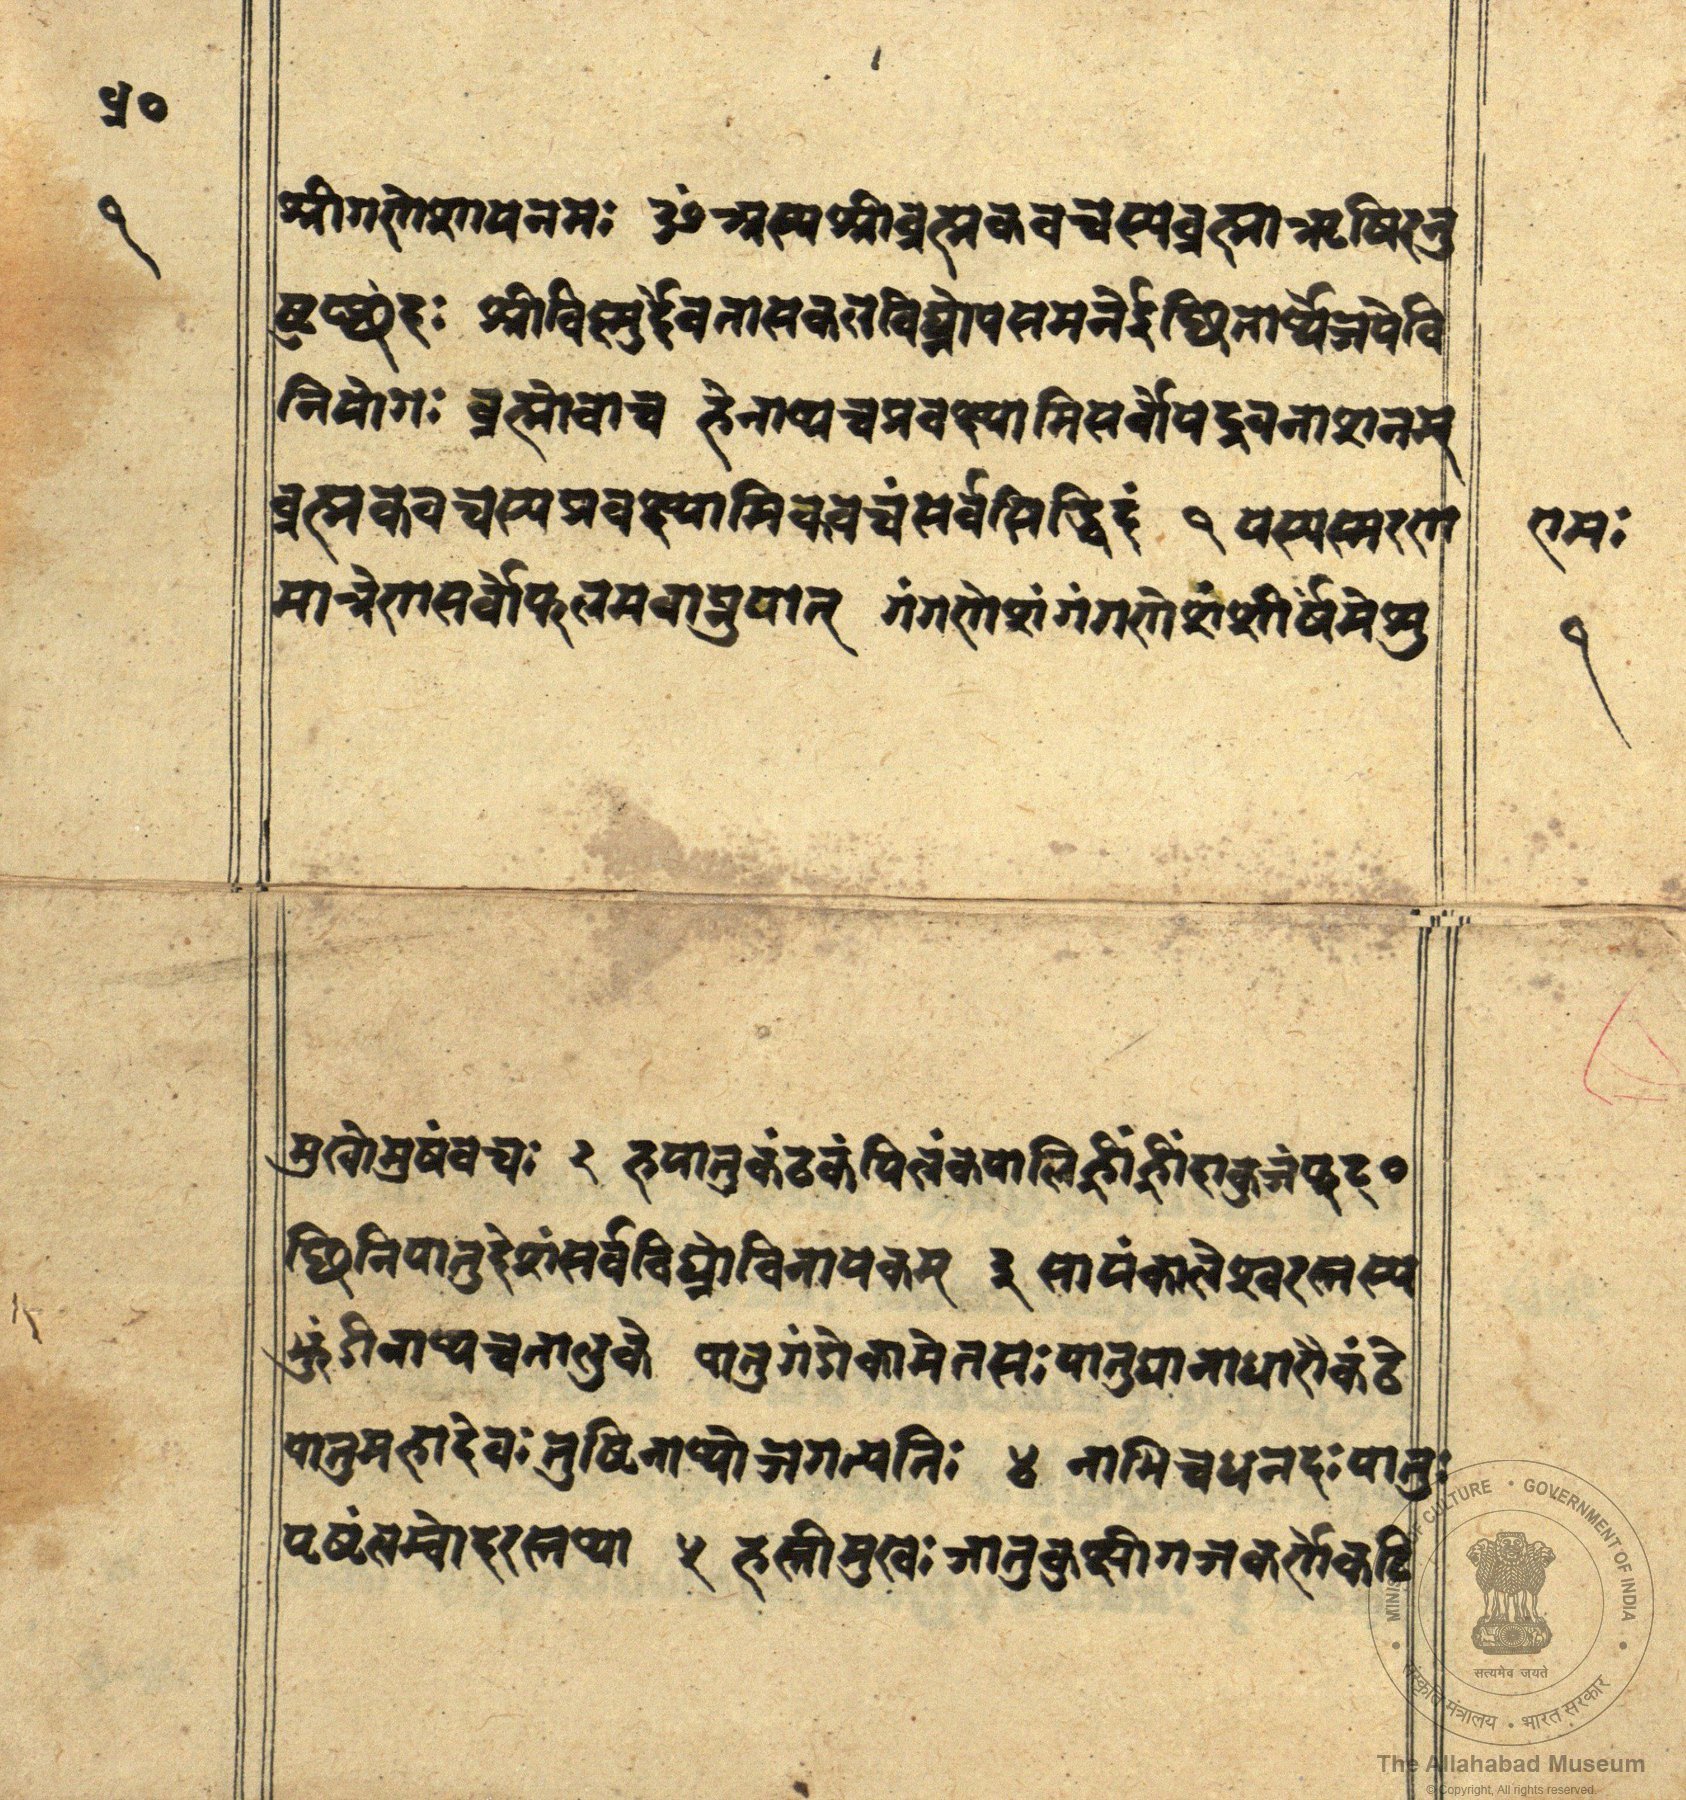 ब्र०
१
श्रीगणेशायनमः ॐ अस्यश्रीब्रह्मकवचस्यब्रह्माऋषिरनु
ष्टुप्छंदः श्रीविष्णुर्द्देवतासकलविघ्नोपसमनेर्ईछितार्थ्येजपेवि
नियोगः ब्रह्मोवाच हेनाथ्यचप्रवक्ष्यामिसर्वोपद्रवनाशनम्
ब्रह्मकवचस्यप्रवक्ष्यामिकवचंसर्वसिद्धिदं १ यस्यस्मरण
रामः
मात्रेणसर्वोफलमवाप्नुयात् गंगणेशंगंगणेशंशीर्षंमेमु
१
मुखोमुषंवचः २ हपातुकंठकंपिलंकपालिह्रींह्रींहाकुजंफुट्०
छिनिपातुद्देशंसर्वविघ्नोविनायकम् ३ सायंकालेश्वरस्तस्य
पातुगंगेकामेतसः पातुघानाधारौकंठे
पातुमहादेवः तुष्टिनाथ्योजगत्पतिः ४ नाभिचधनदःपातुः
पष्टंलम्बोदरस्तथ्या ५ हस्तीमुखः जानुकुक्षीगजकर्णोकटि
सत्यमेव जयते
MINISTRY OF CULTURE • GOVERNMENT OF INDIA
संस्कृति मंत्रालय • भारत सरकार
The Allahabad Museum
© Copyright, All rights reserved.